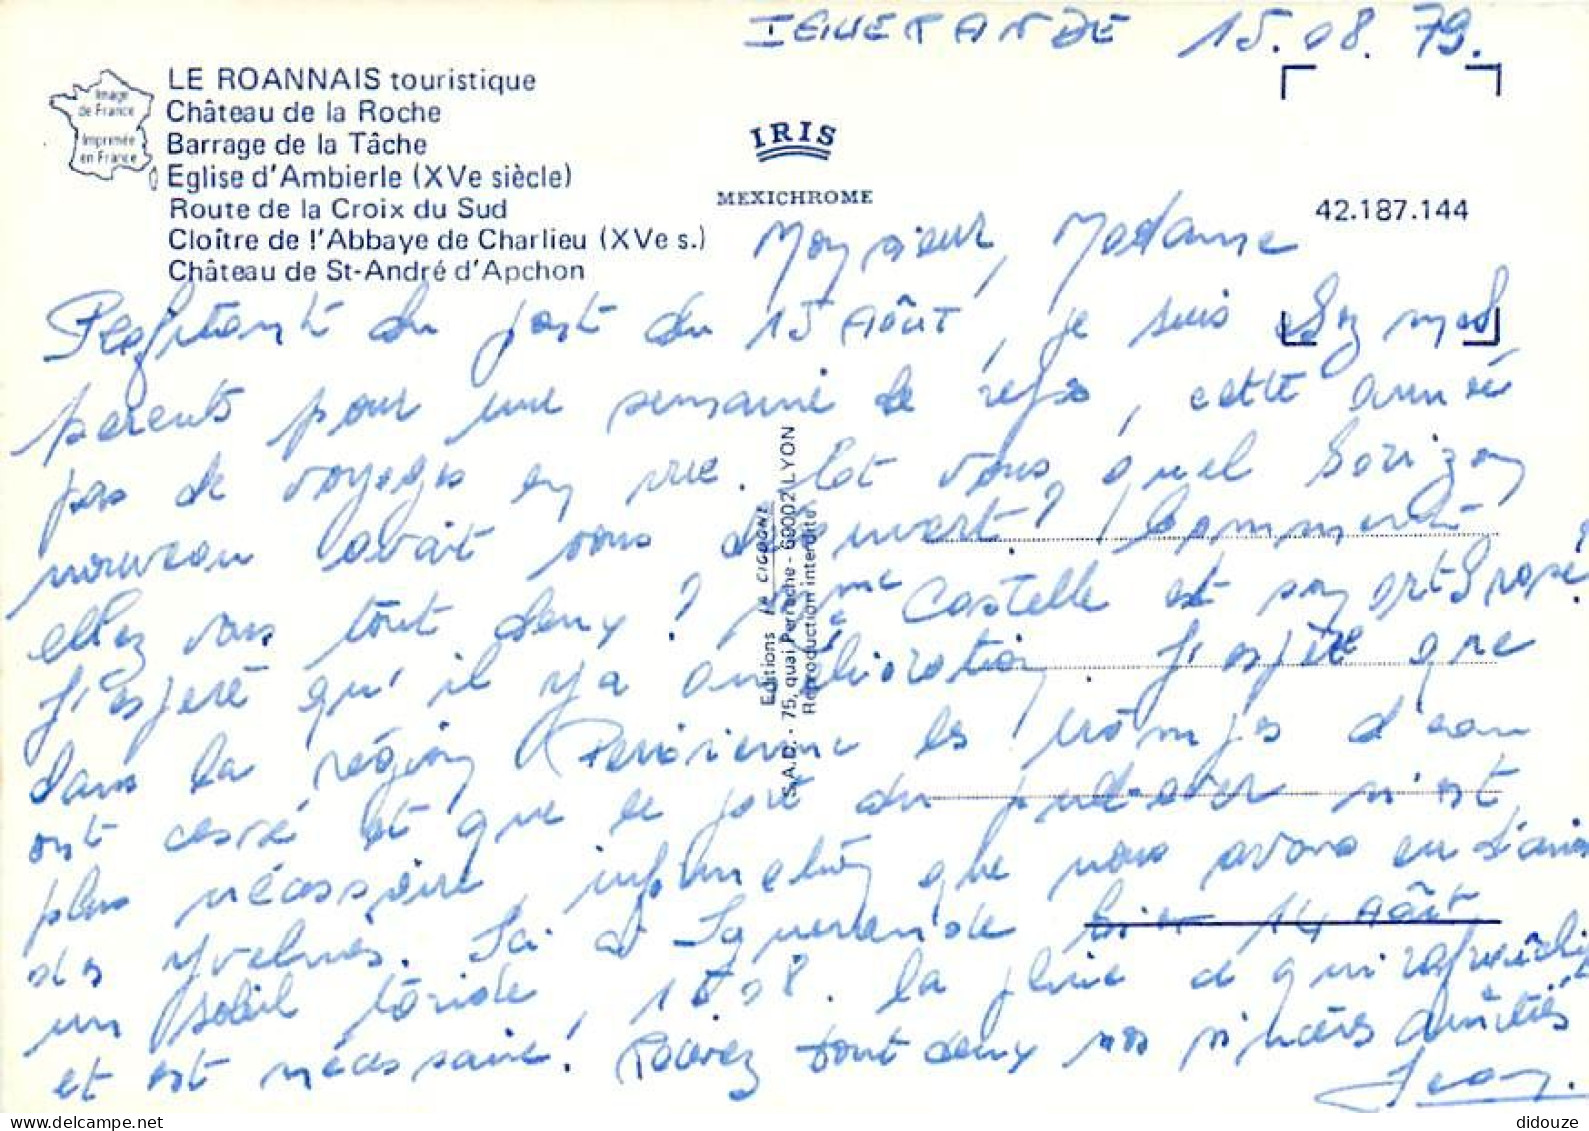 IGUERANDE 15.08.79.
LE ROANNAIS touristique
Château de la Roche
Barrage de la Tâche
Eglise d'Ambierle (XVe siècle)
Route de la Croix du Sud
Cloître de l'Abbaye de Charlieu (XVe s.)
Château de St-André d'Apchon
Image
de France
Imprimée
en France
IRIS
MEXICHROME
42.187.144
Editions LA CIGOGNE
S.A.D. - 75, quai Perrache - 69002 LYON
Reproduction interdite
Monsieur, Madame
Profitant du pont du 15 Août, je suis chez mes
parents pour une semaine de repos, cette année
pas de voyages en vue. Et vous, quel horizon
nouveau avait vous découvert? Comment
allez vous tout deux? Mme Castelle est son arthrose?
J'espère qu'il y a amélioration. J'espère que
dans la région Parisienne les trompes d'eau
ont cessé et que le port du pull-over n'est
plus nécessaire, information que nous avons eu d'amis
des Yvelines. Ici à Iguerande hier 14 Août,
un soleil torride, 15.08. la pluie a qui rafraichi
et est nécessaire! Recevez tout deux nos sincères amitiés
Jean.
didouze